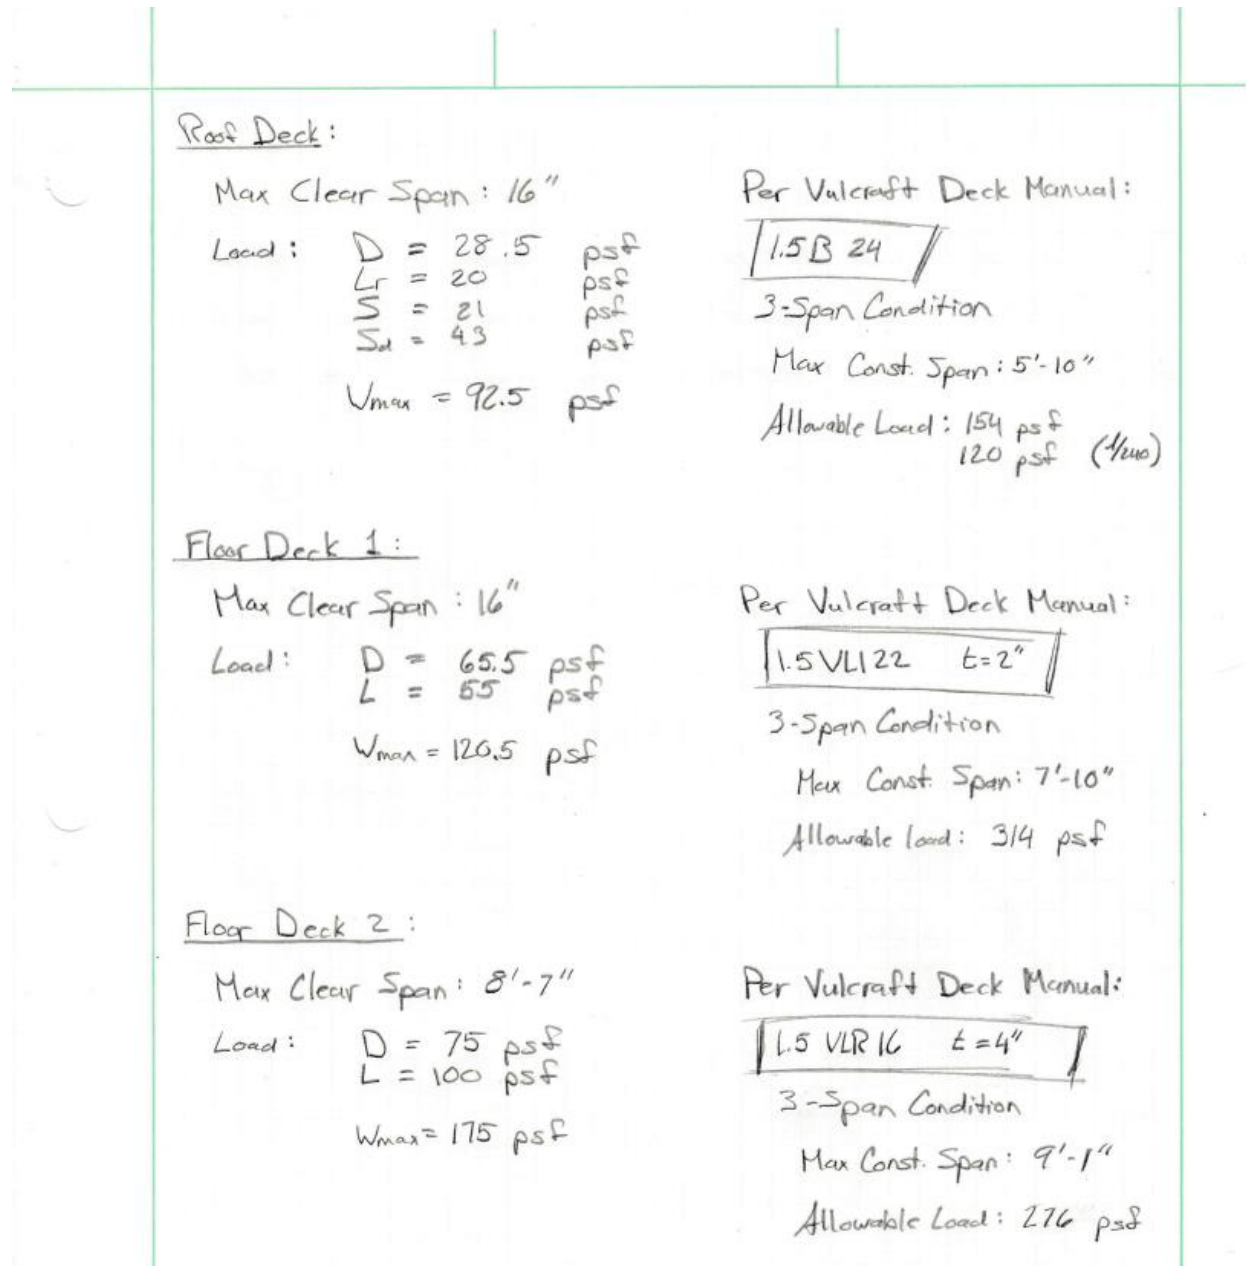 Roof Deck:
Max Clear Span: 16"
Load: D = 28.5 psf
Lr = 20 psf
S = 21 psf
Sd = 43 psf
Wmax = 92.5 psf
Per Vulcraft Deck Manual:
1.5B 24
3-Span Condition
Max Const. Span: 5'-10"
Allowable Load: 154 psf
120 psf (l/240)
Floor Deck 1:
Max Clear Span: 16"
Load: D = 65.5 psf
L = 55 psf
Wmax = 120.5 psf
Per Vulcraft Deck Manual:
1.5 VLI 22 t=2"
3-Span Condition
Max Const. Span: 7'-10"
Allowable load: 314 psf
Floor Deck 2:
Max Clear Span: 8'-7"
Load: D = 75 psf
L = 100 psf
Wmax = 175 psf
Per Vulcraft Deck Manual:
1.5 VLR 16 t=4"
3-Span Condition
Max Const. Span: 9'-1"
Allowable Load: 276 psf